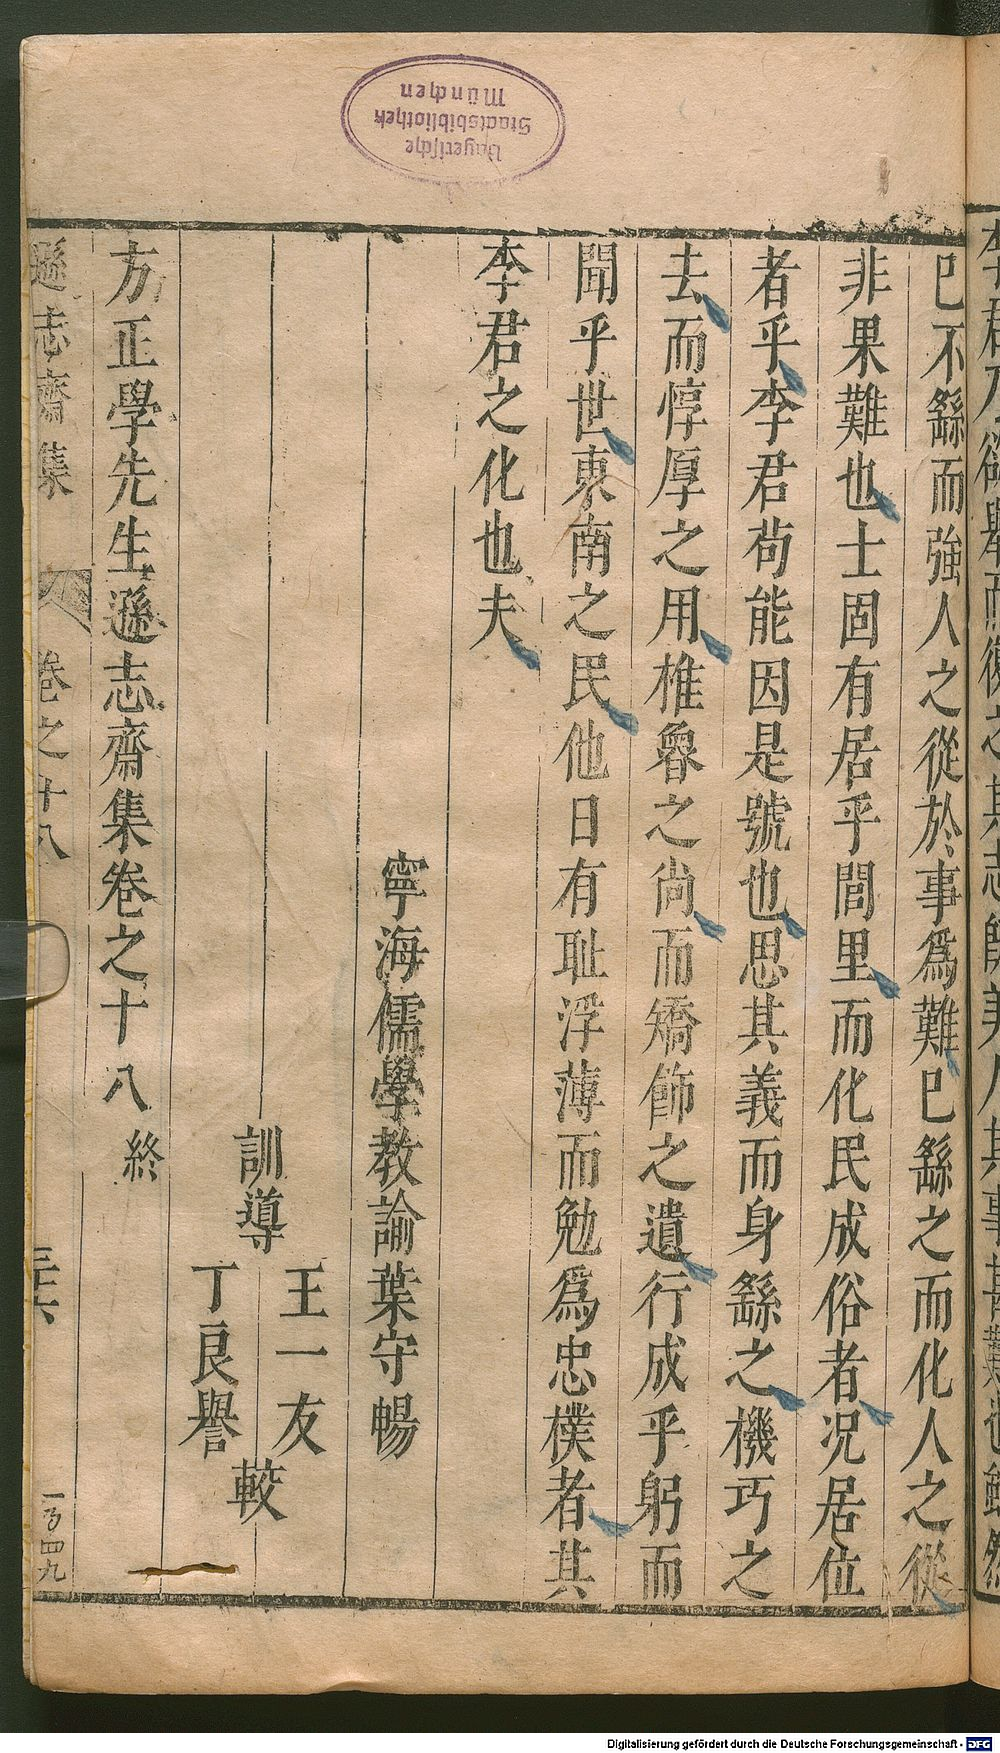 已不繇而強人之從於事爲難已繇之而化人之從
非果難也士固有居乎閭里而化民成俗者况居位
者乎李君茍能因是號也思其義而身繇之機巧之
去而惇厚之用椎魯之尚而矯飾之遺行成乎躬而
聞乎世東南之民他日有耻浮薄而勉爲忠樸者其
李君之化也夫
寧海儒學教諭葉守暢
訓導
王一友
丁良譽
較
方正學先生遜志齋集卷之十八 終
遜志齋集 卷之十八
Bayerische
Staatsbibliothek
München
Digitalisierung gefördert durch die Deutsche Forschungsgemeinschaft - DFG